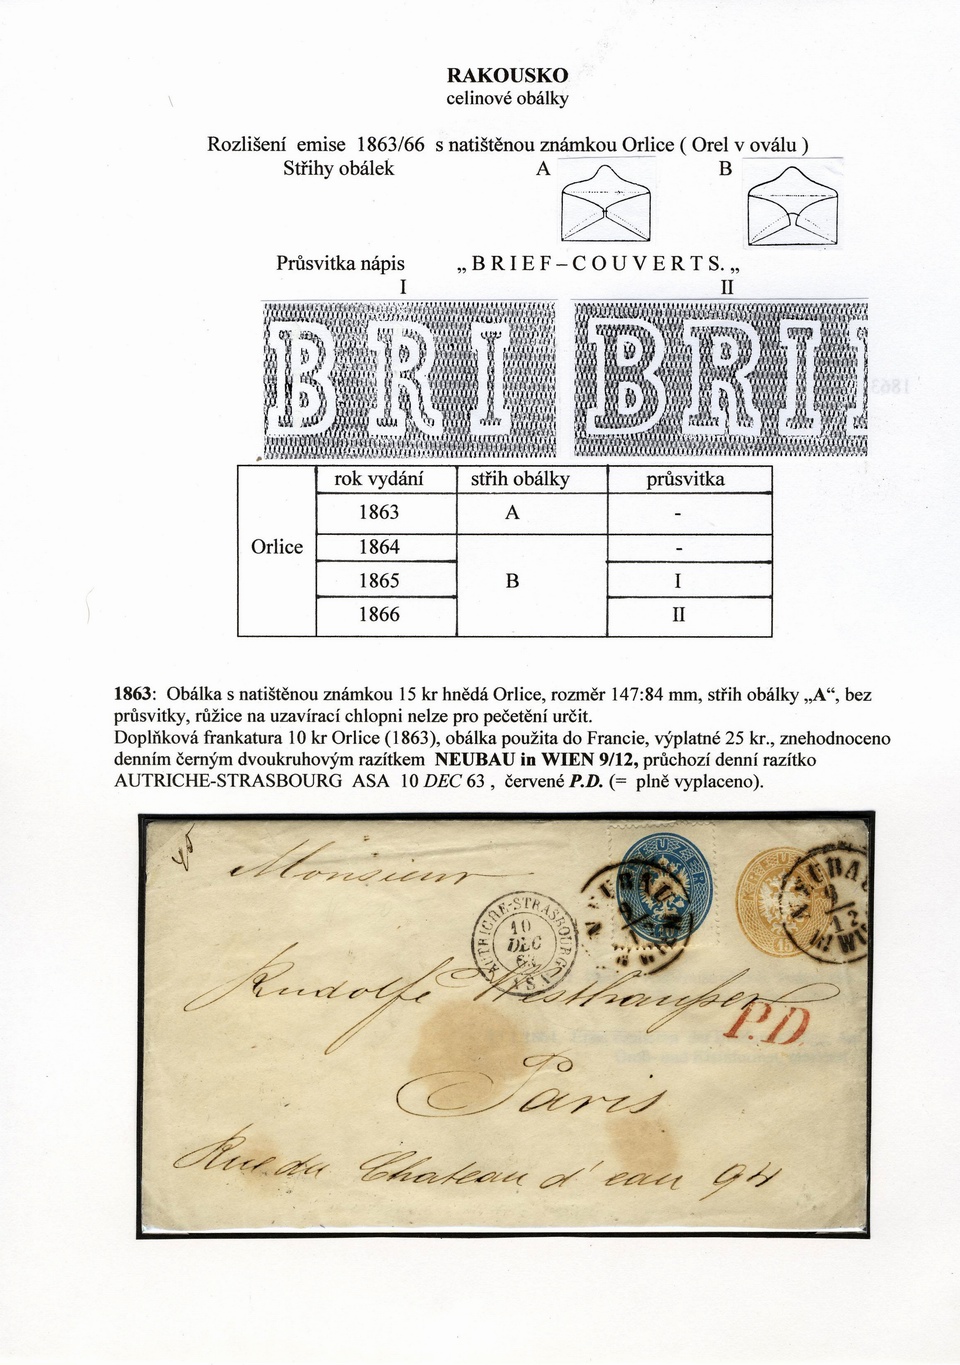 RAKOUSKO
celinové obálky
Rozlišení emise 1863/66 s natištěnou známkou Orlice ( Orel v oválu )
Střihy obálek A B
Průsvitka nápis „ B R I E F – C O U V E R T S. „
I II
BRI BRI
rok vydání střih obálky průsvitka
1863 A -
Orlice 1864 -
1865 B I
1866 II
1863: Obálka s natištěnou známkou 15 kr hnědá Orlice, rozměr 147:84 mm, střih obálky „A“, bez
průsvitky, růžice na uzavírací chlopni nelze pro pečetění určit.
Doplňková frankatura 10 kr Orlice (1863), obálka použita do Francie, výplatné 25 kr., znehodnoceno
denním černým dvoukruhovým razítkem NEUBAU in WIEN 9/12, průchozí denní razítko
AUTRICHE-STRASBOURG ASA 10 DEC 63 , červené P.D. (= plně vyplaceno).
Monsieur
AUTRICHE-STRASBOURG
10
DEC
63
ASA
NEUBAU
9
12
WIEN
NEUBAU
9
12
WIEN
Rudolfe Westhausser
P.D.
Paris
Rue du Chateau d'eau 94